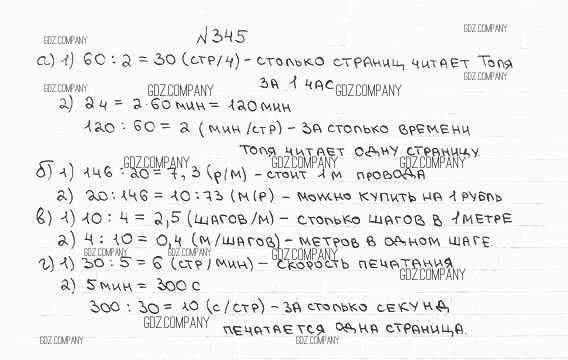 №345
GDZ.COMPANY
GDZ.COMPANY
а) 1) 60 : 2 = 30 (стр/ч) - столько страниц читает Толя
за 1 час
GDZ.COMPANY
GDZ.COMPANY
GDZ.COMPANY
GDZ.COMPANY
2) 2ч = 2·60 мин = 120 мин
120 : 60 = 2 (мин/стр) - за столько времени
Толя читает одну страницу.
GDZ.COMPANY
GDZ.COMPANY
GDZ.COMPANY
б) 1) 146 : 20 = 7,3 (р/м) - стоит 1 м провода
2) 20 : 146 = 10 : 73 (м/р) - можно купить на 1 рубль
в) 1) 10 : 4 = 2,5 (шагов/м) - столько шагов в 1 метре
2) 4 : 10 = 0,4 (м/шагов) - метров в одном шаге.
GDZ.COMPANY
GDZ.COMPANY
GDZ.COMPANY
г) 1) 30 : 5 = 6 (стр/мин) - скорость печатания
GDZ.COMPANY
2) 5 мин = 300 с
300 : 30 = 10 (с/стр) - за столько секунд
GDZ.COMPANY
печатается одна страница.
GDZ.COMPANY
GDZ.COMPANY